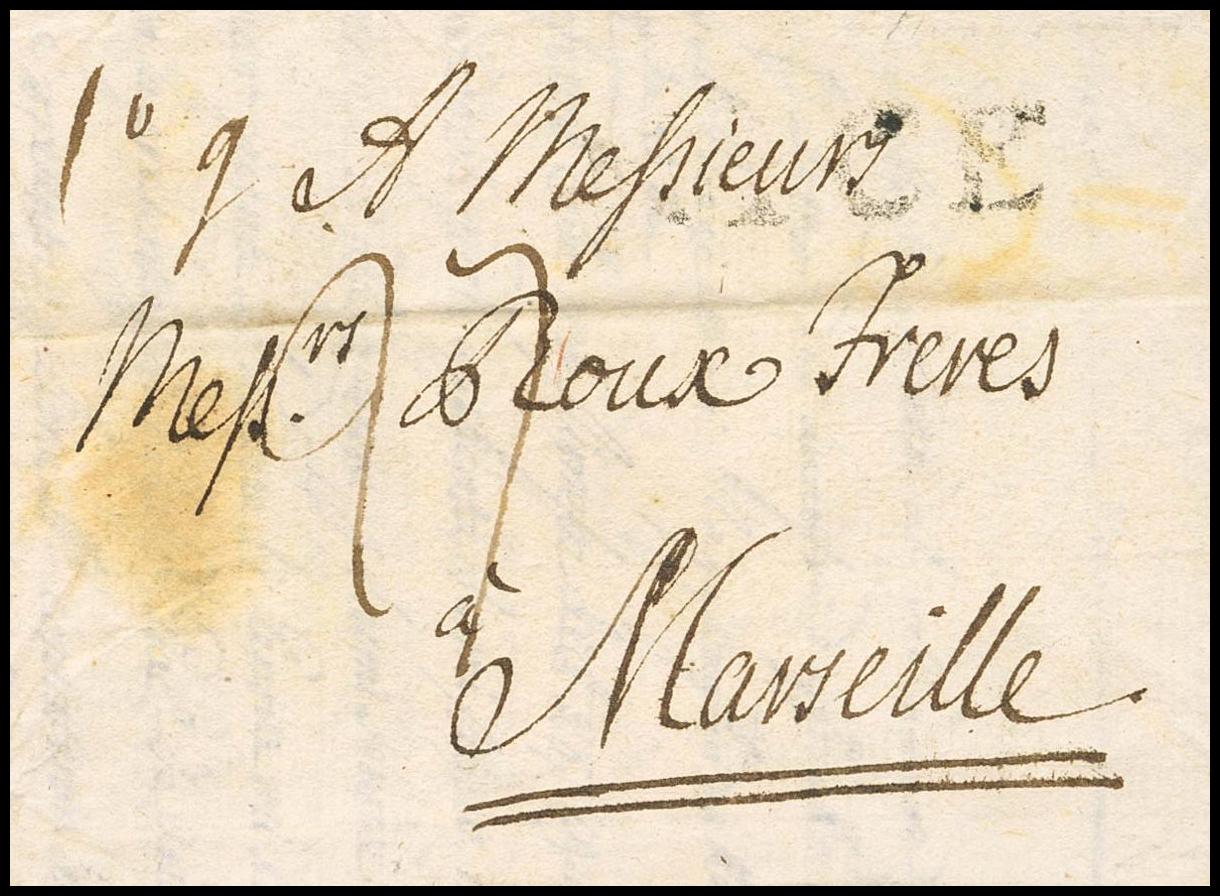 1º 9 A Messieurs
Messrs Roux Freres
à Marseille